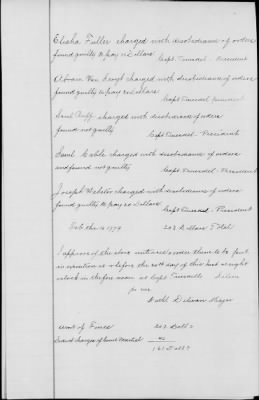 Elisha Fuller charged with disobediance of orders
found guilty to pay 20 Dollars
Capt Truesdel - President
Abram Van Scoyt charged with disobediance of orders
found guilty to pay 20 Dollars
Capt Truesdel President
Saml charged with disobediance of orders
found not guilty
Capt Truesdel - President
Saml Cable charged with disobediance of orders
and found not guilty
Capt Truesdel - President
Joseph Webster charged with disobediance of orders
found guilty to pay 20 Dollars
Capt Truesdel - President
Feb the 1779 203 Dollars Total
I approve of the above order them to be put
in execution at or before the 20th day of this Inst at eight
oclock in the fore noon at Capt Salem
for me
Nathl Delivan Major
Amt of Fines 203 Dolls
Deduct charges of Court Martial 42
161 Dolls